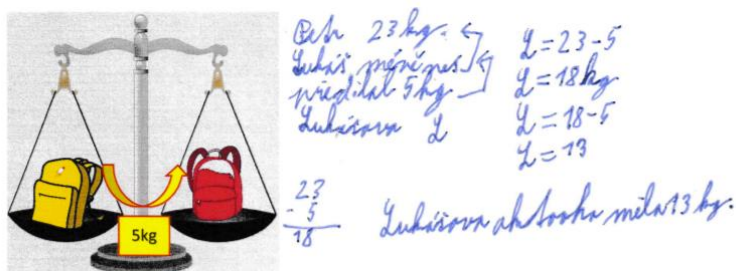 5kg
Petr 23 kg.
Lukáš méně než
předělal 5 kg
Lukášova L
L = 23 - 5
L = 18 kg
L = 18 - 5
L = 13
23
- 5
18
Lukášova aktovka měla 13 kg.